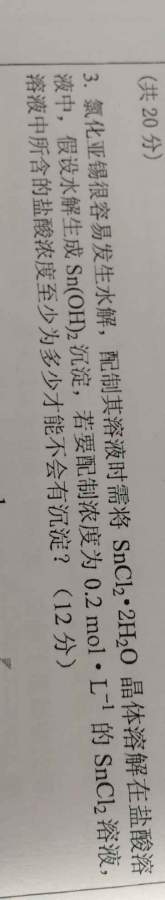 (共 20 分)
3. 氯化亚锡很容易发生水解，配制其溶液时需将 SnCl₂•2H₂O 晶体溶解在盐酸溶
液中，假设水解生成 Sn(OH)₂ 沉淀，若要配制浓度为 0.2 mol • L⁻¹ 的 SnCl₂ 溶液，
溶液中所含的盐酸浓度至少为多少才能不会有沉淀？（12 分）